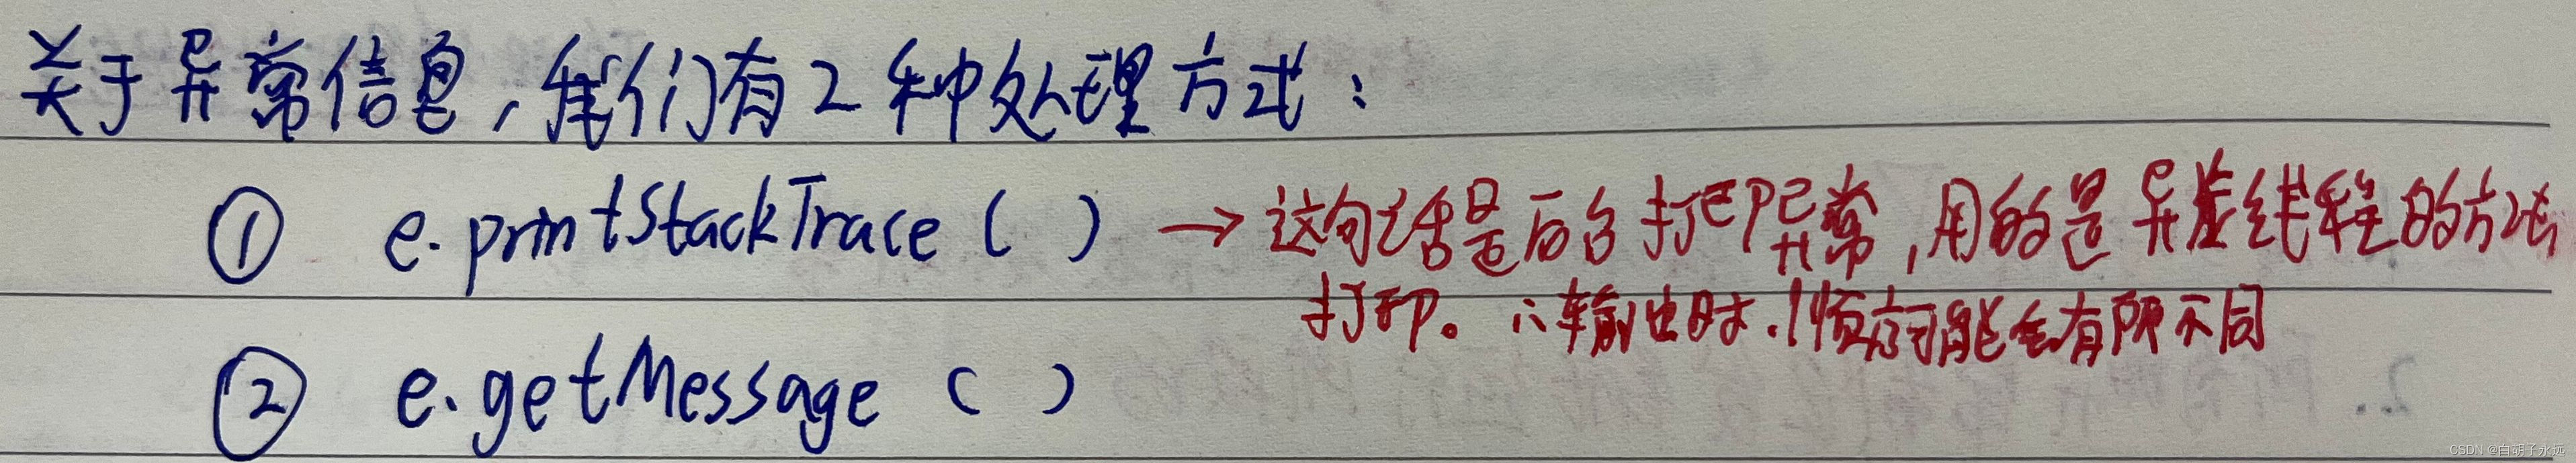 关于异常信息，我们有2种处理方式：
① e.printStackTrace ( ) → 这句话是后台打印异常，用的是异步线程的方法
打印。∴输出时.顺序可能会有所不同
② e.getMessage ( )
CSDN @白胡子永远